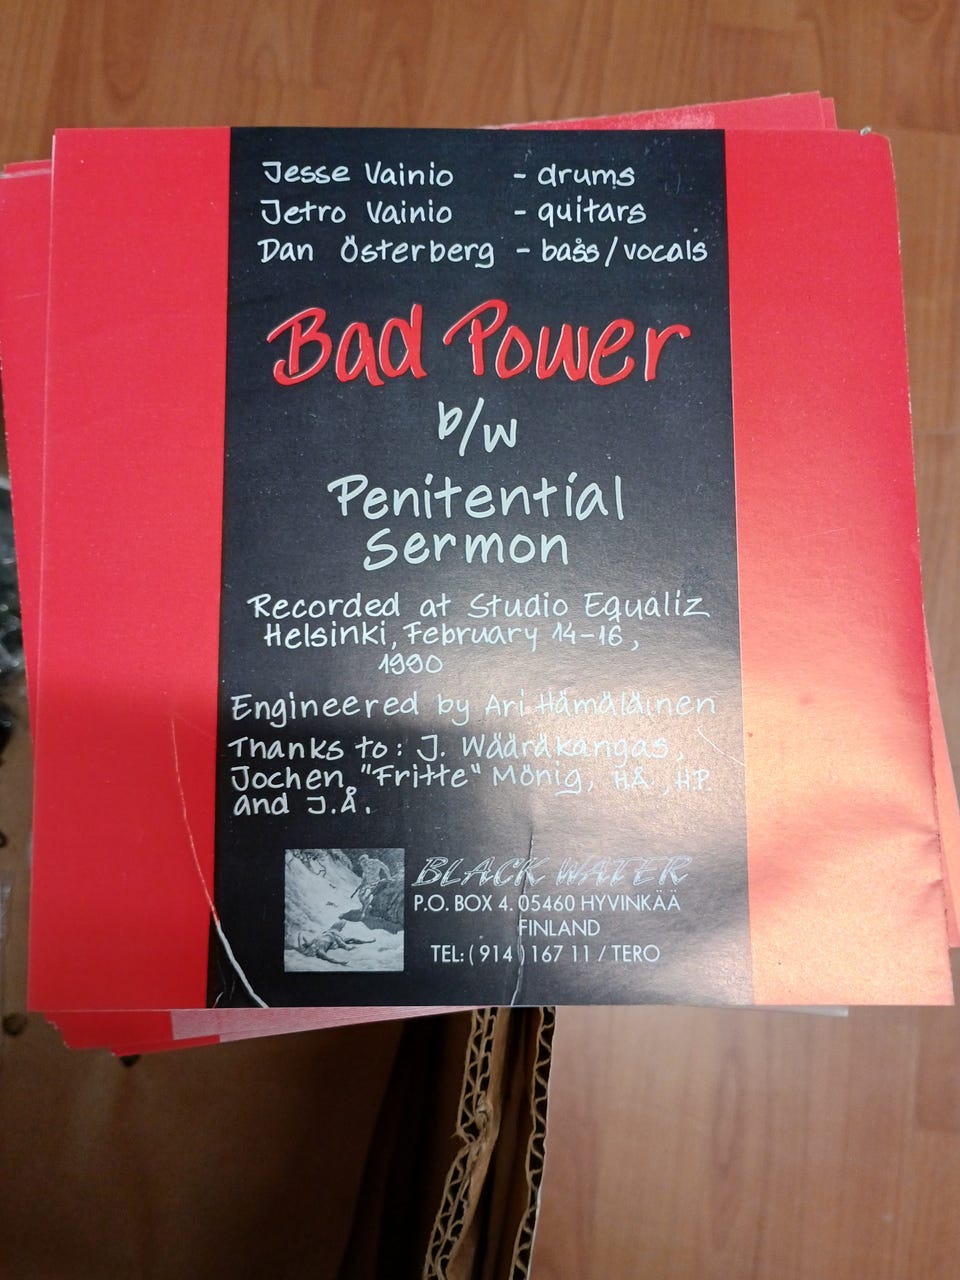 Jesse Vainio - drums
Jetro Vainio - guitars
Dan Österberg - bass/vocals
Bad Power
b/w
Penitential
Sermon
Recorded at Studio Equaliz
Helsinki, February 14-16,
1990
Engineered by Ari Hämäläinen
Thanks to: J. Wääräkangas,
Jochen "Fritte" Mönig, H.Å., H.P.
and J.Å.
BLACK WATER
P.O. BOX 4. 05460 HYVINKÄÄ
FINLAND
TEL: (914) 167 11 / TERO